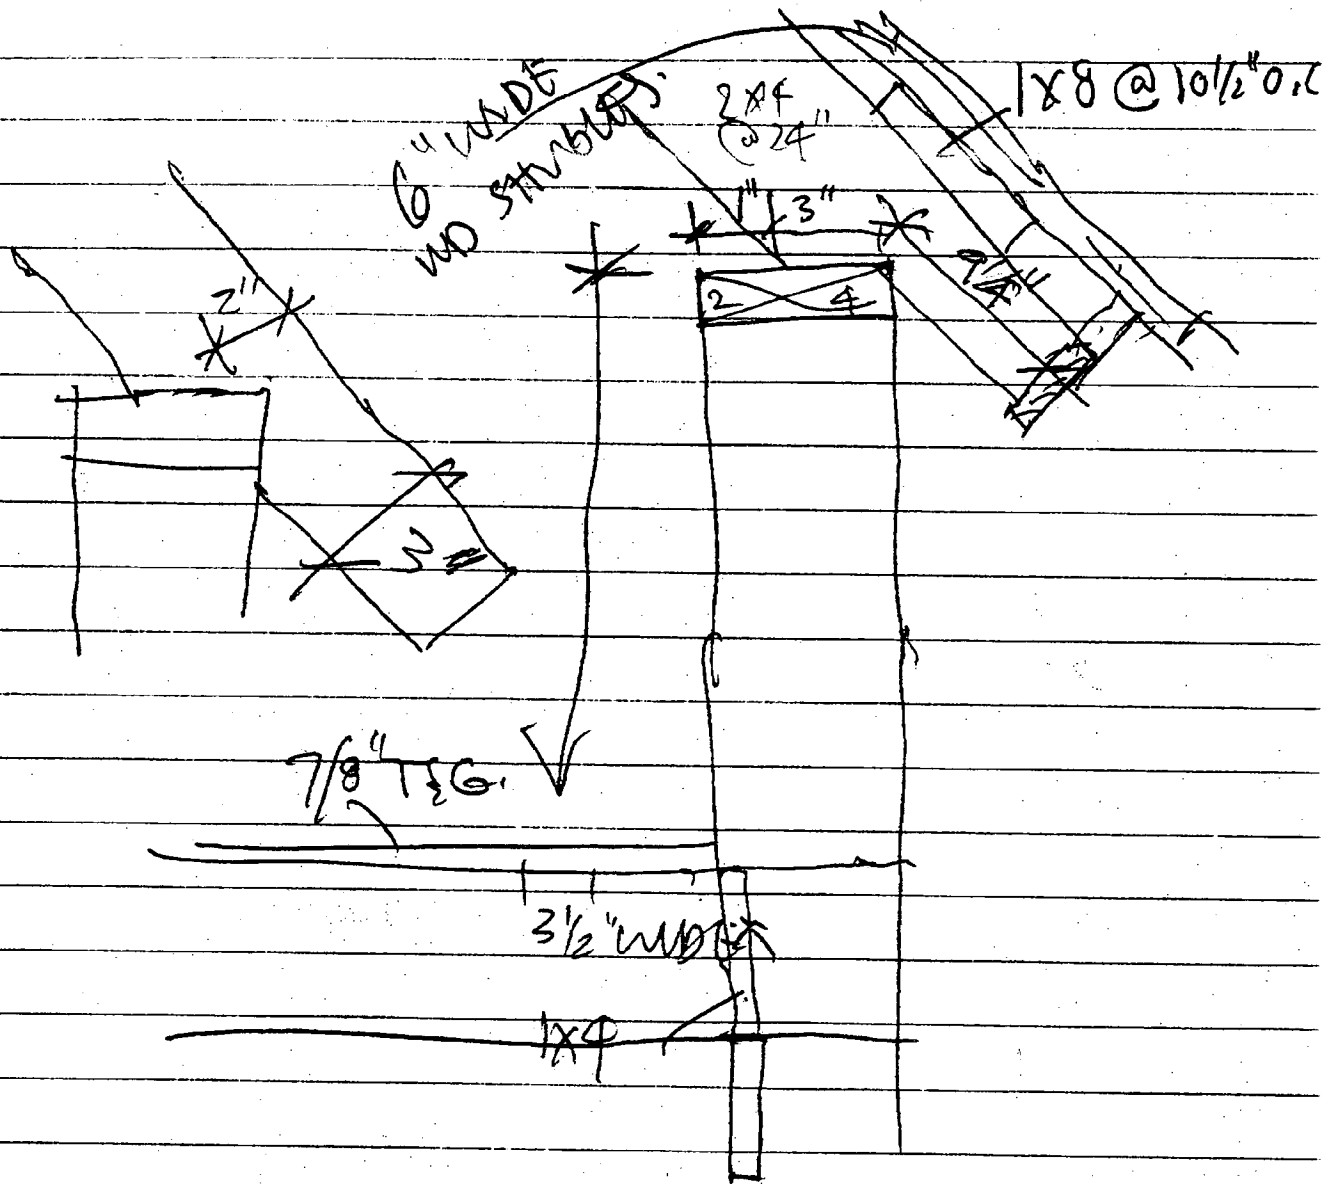 1X8 @ 10 1/2" O.C
6" WIDE
WD SHINGLES.
2X4
@ 24"
1" 3"
2"
2 4
3"
7/8" T&G.
3 1/2" WIDE
1X4